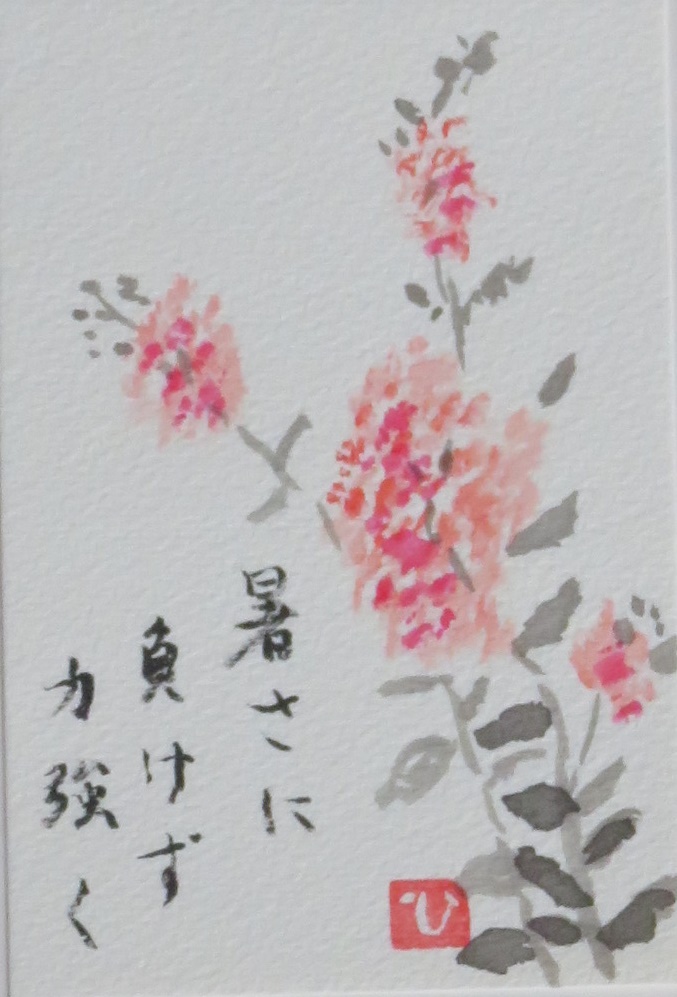 暑さに
負けず
力強く
ひ